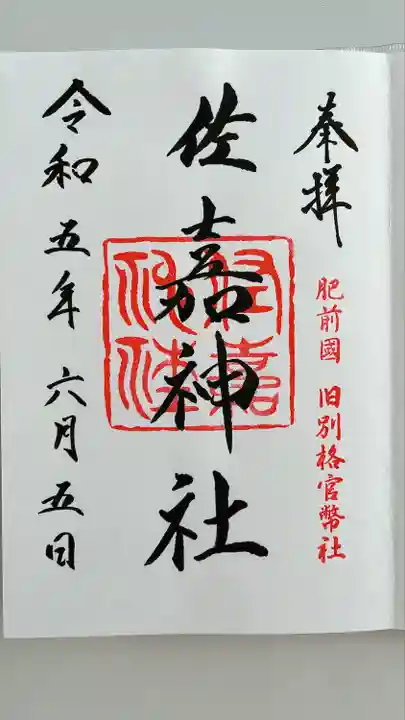 奉拝
肥前國 旧別格官幣社
佐嘉神社
令和五年六月五日